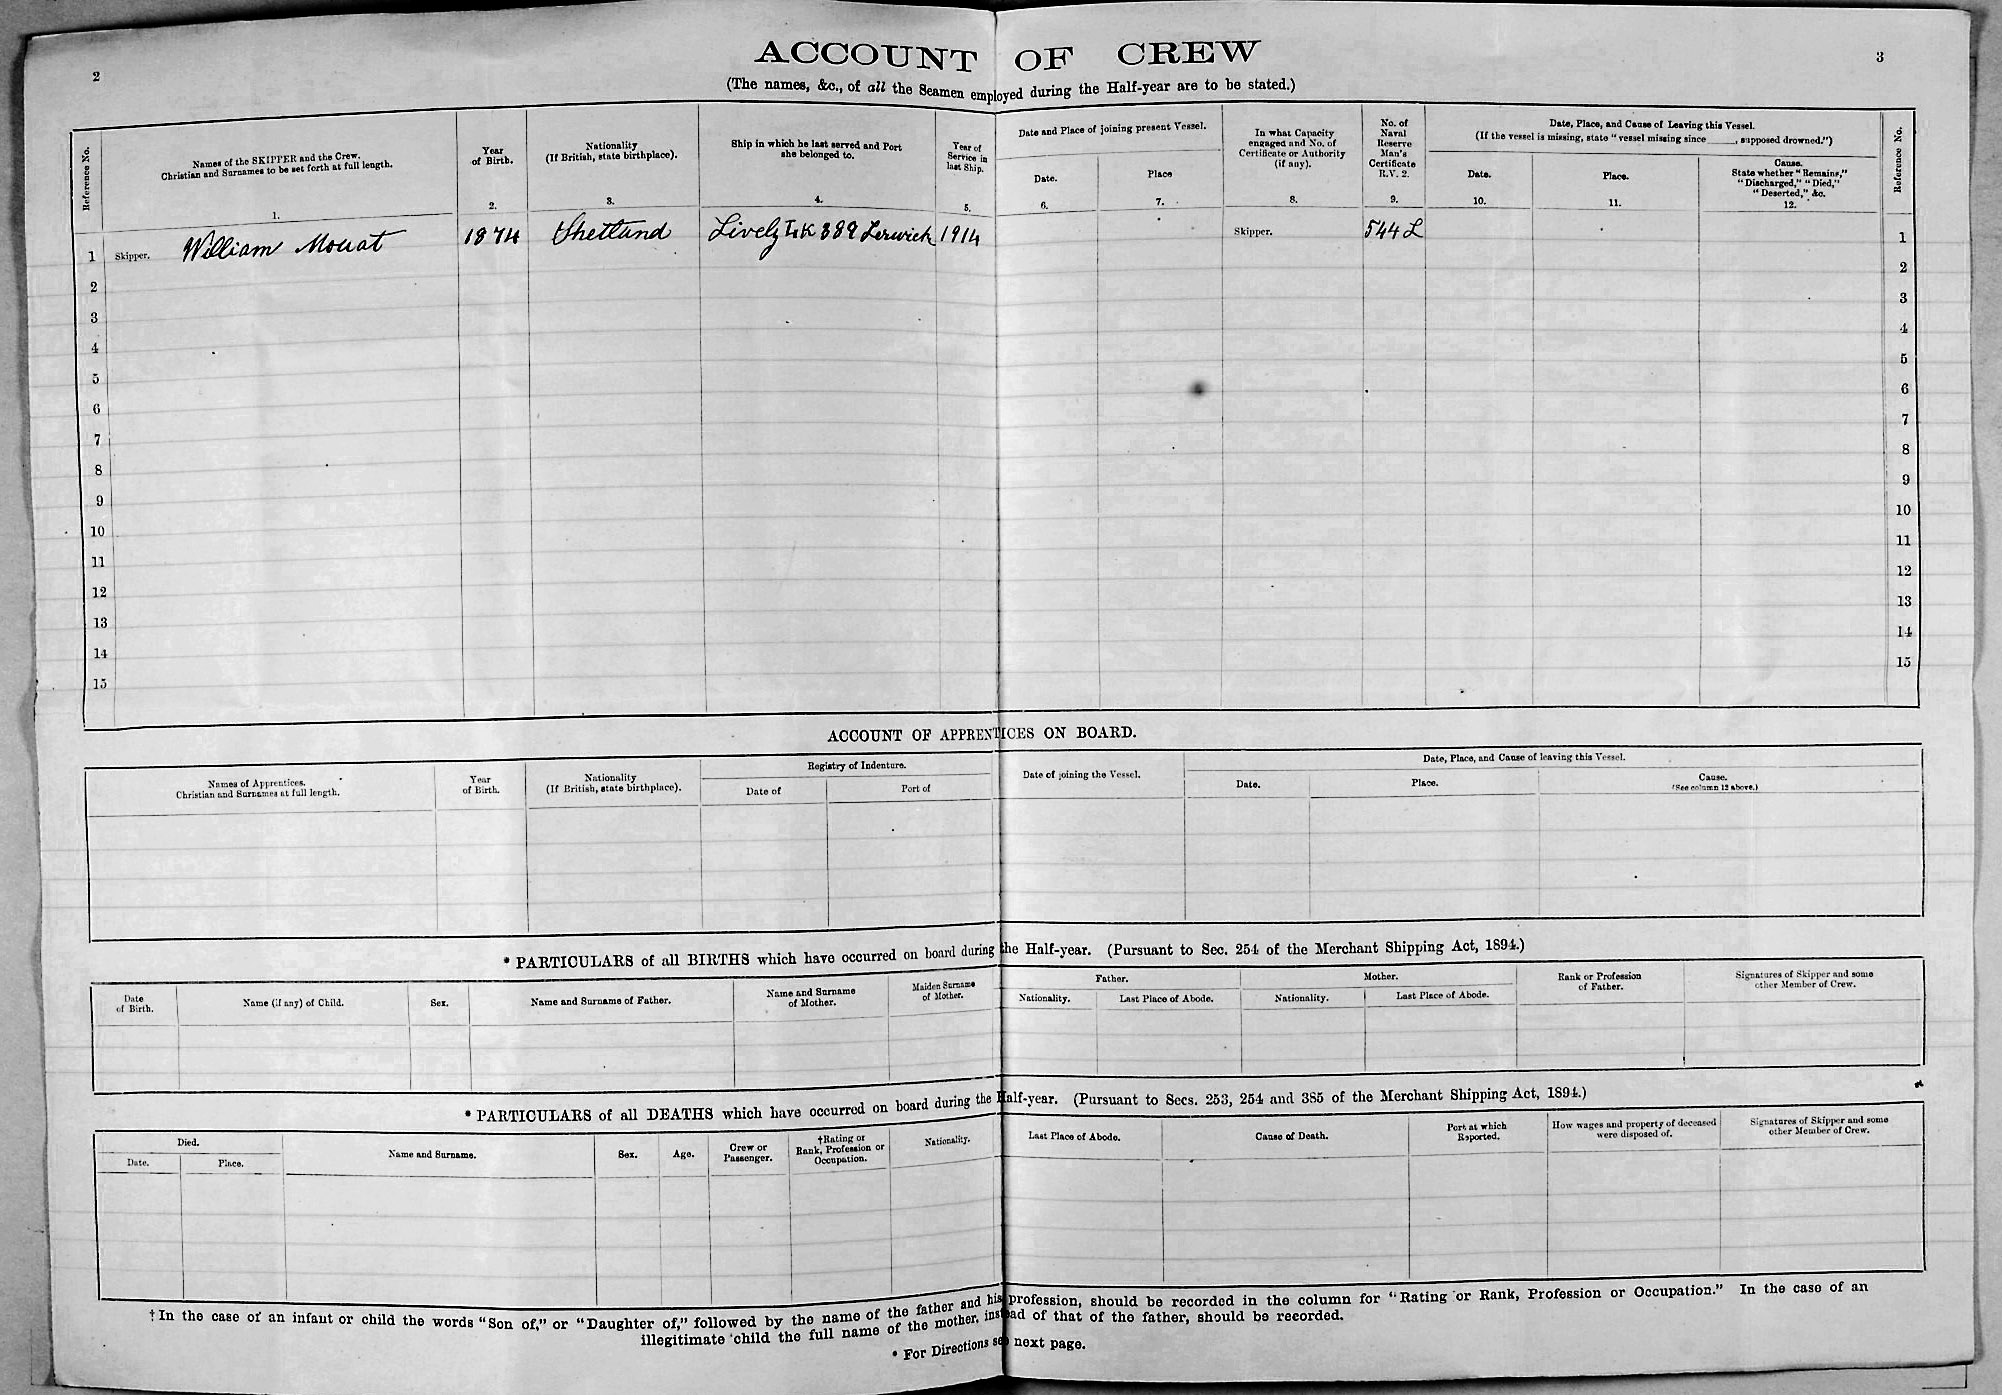 2
ACCOUNT OF CREW
3
(The names, &c., of all the Seamen employed during the Half-year are to be stated.)
Reference No.
Names of the SKIPPER and the Crew.
Christian and Surnames to be set forth at full length.
1.
Year
of Birth.
2.
Nationality
(If British, state birthplace).
3.
Ship in which he last served and Port
she belonged to.
4.
Year of
Service in
last Ship.
5.
Date and Place of joining present Vessel.
Date.
6.
Place
7.
In what Capacity
engaged and No. of
Certificate or Authority
(if any).
8.
No. of
Naval
Reserve
Man's
Certificate
R.V. 2.
9.
Date, Place, and Cause of Leaving this Vessel.
(If the vessel is missing, state "vessel missing since ____, supposed drowned.")
Date.
10.
Place.
11.
Cause.
State whether "Remains,"
"Discharged," "Died,"
"Deserted," &c.
12.
Reference No.
1 Skipper. William Mouat 1874 Shetland Lively LK 389 Lerwick 1914 Skipper. 544 L 1
2 2
3 3
4 4
5 5
6 6
7 7
8 8
9 9
10 10
11 11
12 12
13 13
14 14
15 15
ACCOUNT OF APPRENTICES ON BOARD.
Names of Apprentices.
Christian and Surnames at full length.
Year
of Birth.
Nationality
(If British, state birthplace).
Registry of Indenture.
Date of
Port of
Date of joining the Vessel.
Date, Place, and Cause of leaving this Vessel.
Date.
Place.
Cause.
(See column 12 above.)
* PARTICULARS of all BIRTHS which have occurred on board during the Half-year. (Pursuant to Sec. 254 of the Merchant Shipping Act, 1894.)
Date
of Birth.
Name (if any) of Child.
Sex.
Name and Surname of Father.
Name and Surname
of Mother.
Maiden Surname
of Mother.
Father.
Nationality.
Last Place of Abode.
Mother.
Nationality.
Last Place of Abode.
Rank or Profession
of Father.
Signatures of Skipper and some
other Member of Crew.
* PARTICULARS of all DEATHS which have occurred on board during the Half-year. (Pursuant to Secs. 253, 254 and 385 of the Merchant Shipping Act, 1894.)
Died.
Date.
Place.
Name and Surname.
Sex.
Age.
Crew or
Passenger.
†Rating or
Rank, Profession or
Occupation.
Nationality.
Last Place of Abode.
Cause of Death.
Port at which
Reported.
How wages and property of deceased
were disposed of.
Signatures of Skipper and some
other Member of Crew.
† In the case of an infant or child the words "Son of," or "Daughter of," followed by the name of the father and his profession, should be recorded in the column for "Rating or Rank, Profession or Occupation." In the case of an
illegitimate child the full name of the mother, instead of that of the father, should be recorded.
* For Directions see next page.